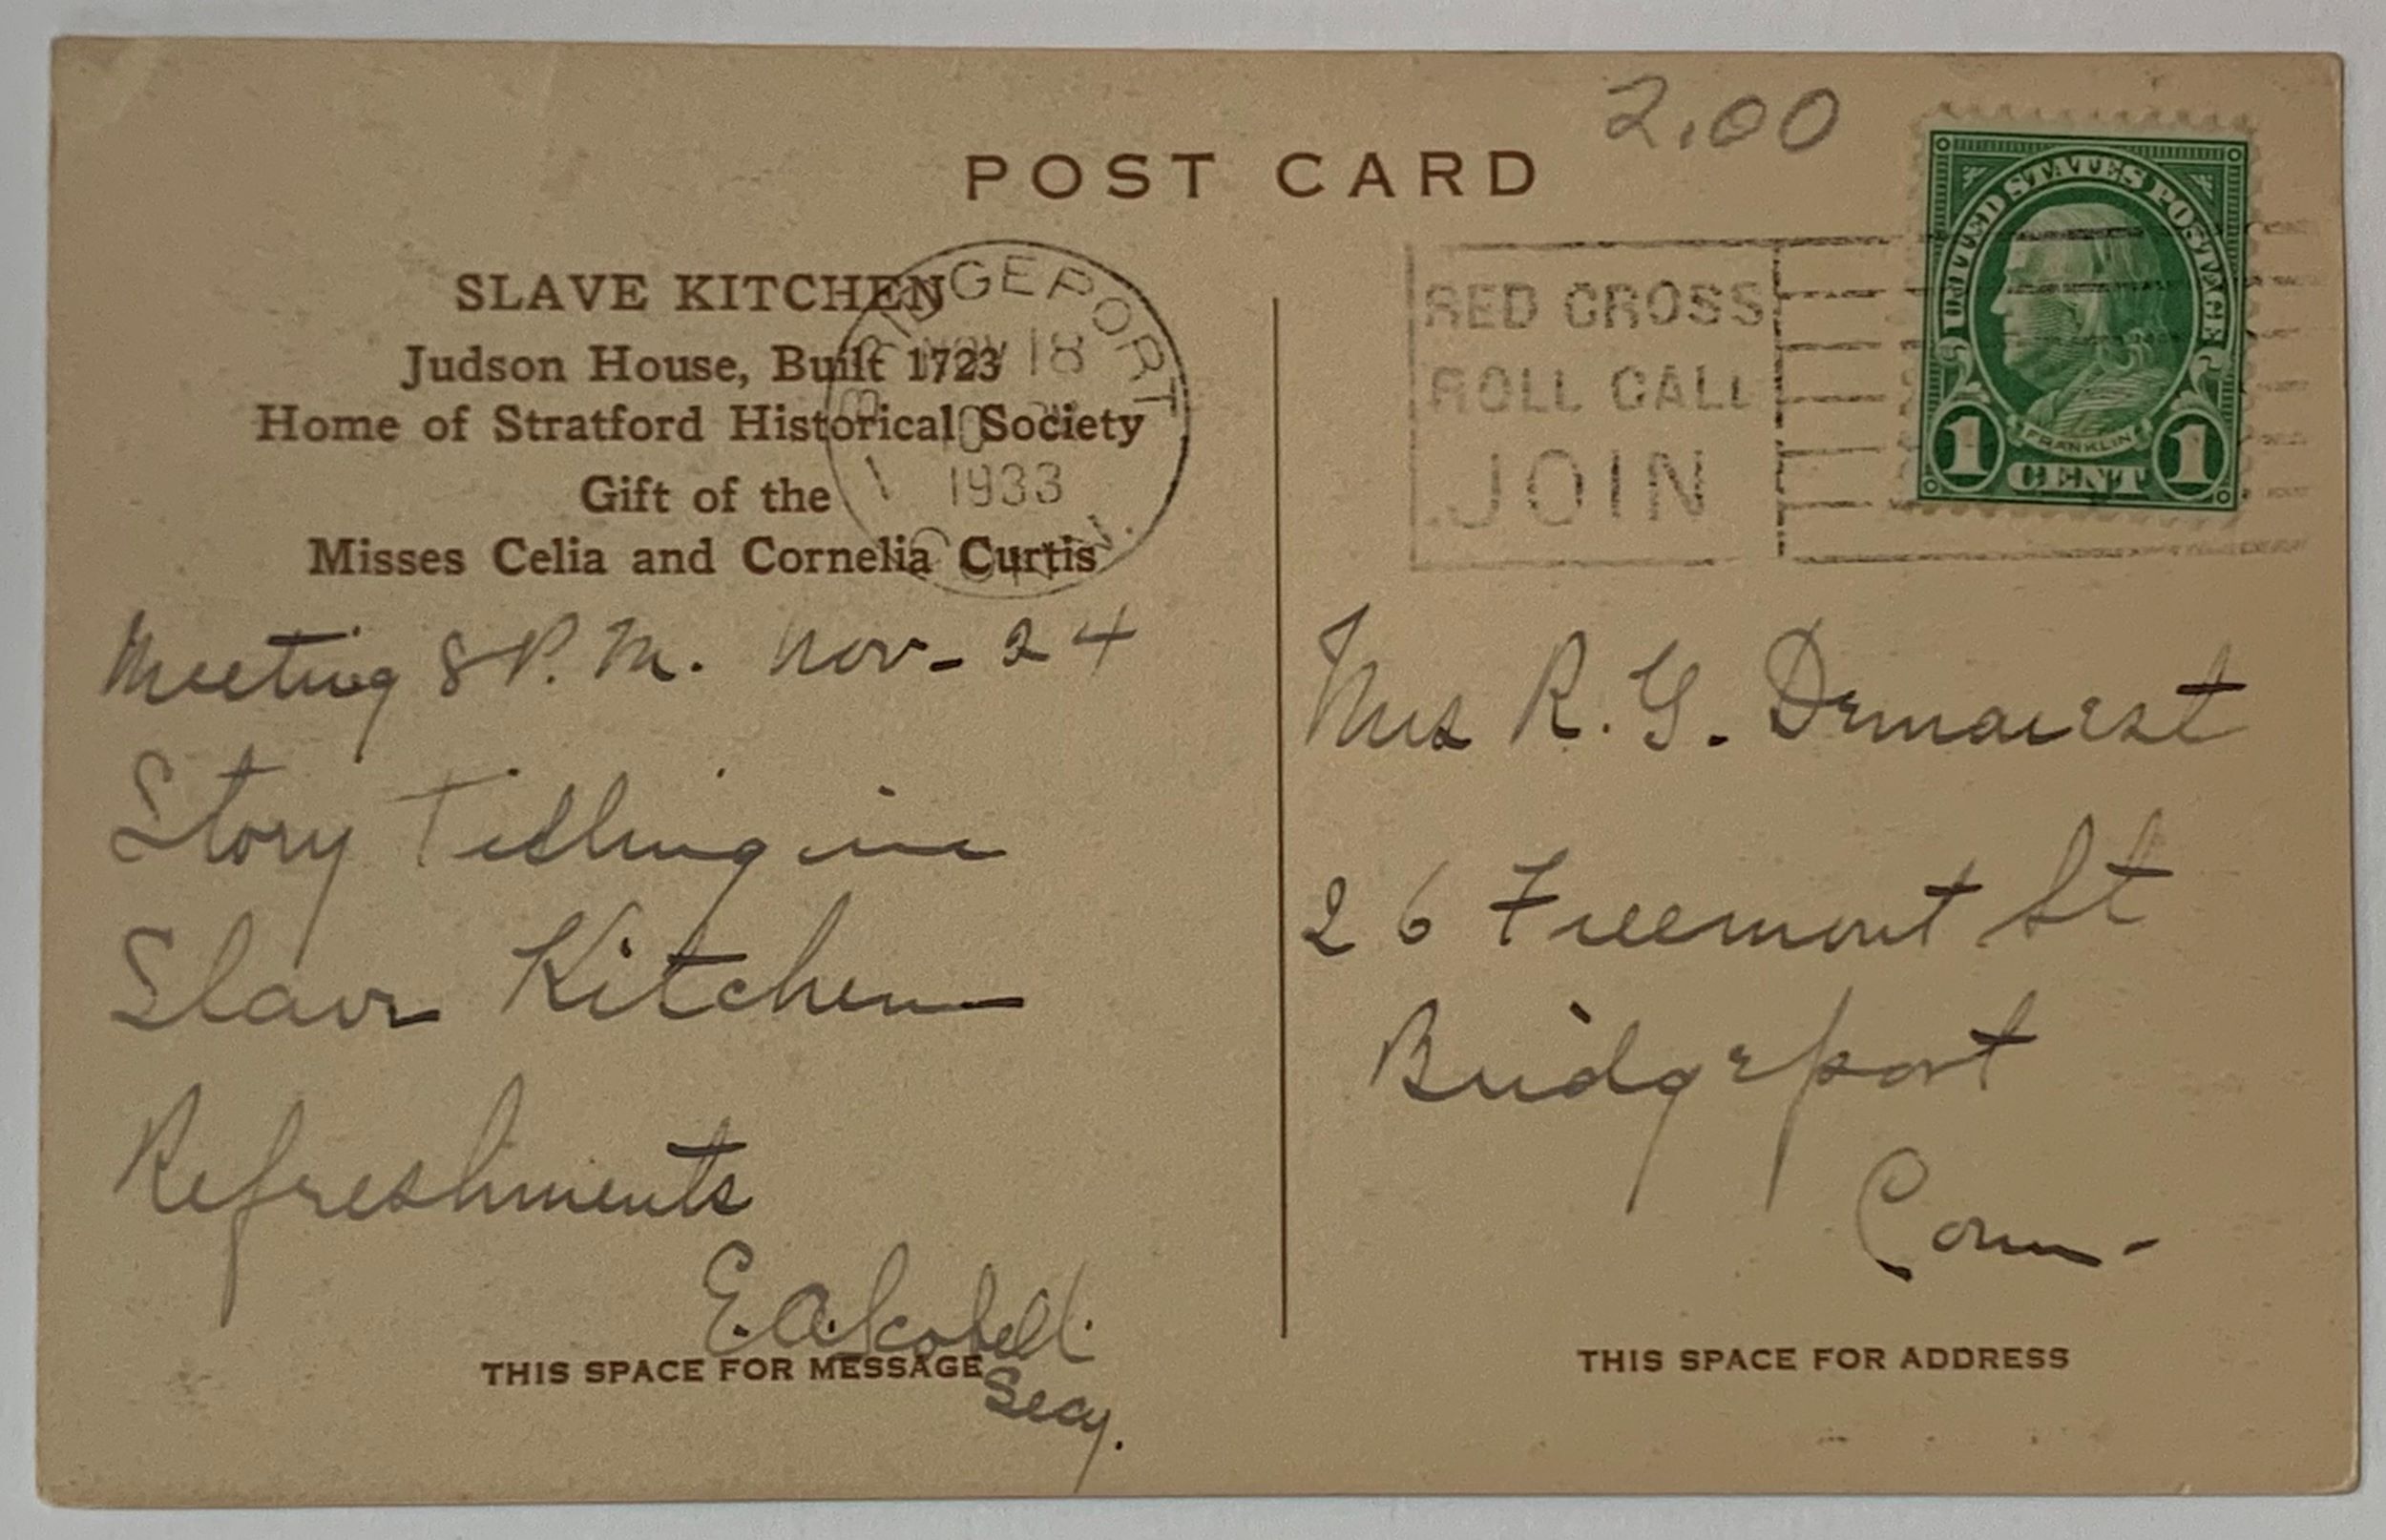 2.00
POST CARD
SLAVE KITCHEN
Judson House, Built 1723
Home of Stratford Historical Society
Gift of the
Misses Celia and Cornelia Curtis
BRIDGEPORT
NOV 18
1933
CONN.
RED CROSS
ROLL CALL
JOIN
UNITED STATES POSTAGE
FRANKLIN
1 CENT 1
Meeting 8 P.M. Nov- 24
Story Telling in
Slave Kitchen
Refreshments
E. A. Scobell.
Secy.
THIS SPACE FOR MESSAGE
Mrs R. G. Demarest
26 Freemont St
Bridgeport
Conn-
THIS SPACE FOR ADDRESS